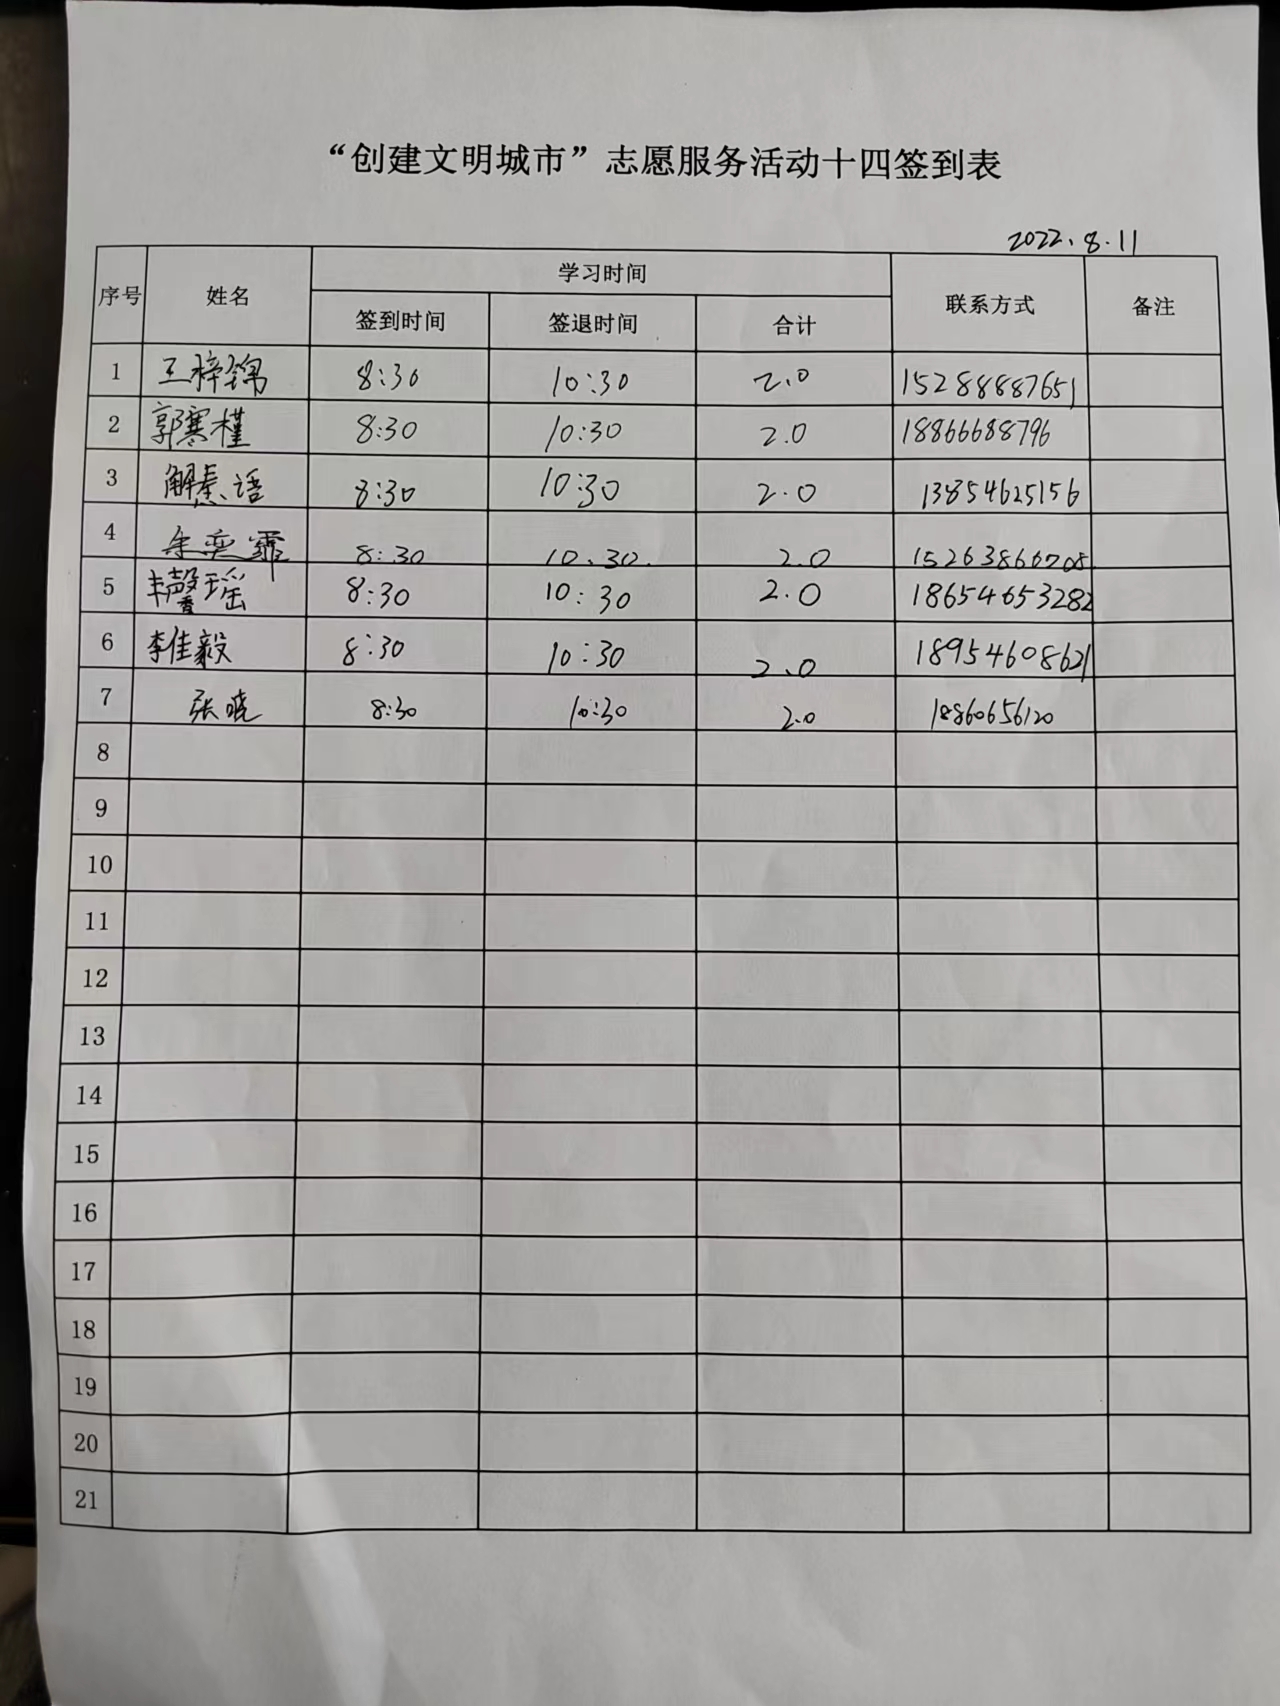 “创建文明城市”志愿服务活动十四签到表
2022.8.11
序号 姓名 学习时间 联系方式 备注
签到时间 签退时间 合计
1 王梓锦 8:30 10:30 2.0 15288887651
2 郭寒槿 8:30 10:30 2.0 18866688796
3 解 语 8:30 10:30 2.0 13854625156
4 奕霏 8:30 10:30. 2.0
5 丰馨瑶 8:30 10:30 2.0 18654653282
6 李佳毅 8:30 10:30 2.0 18954608621
7 张晓 8:30 10:30 2.0 18860656120
8
9
10
11
12
13
14
15
16
17
18
19
20
21